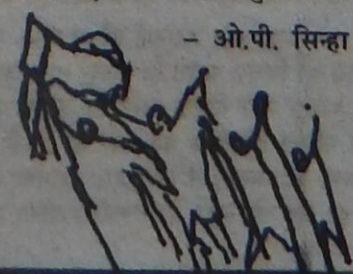 – ओ.पी. सिन्हा